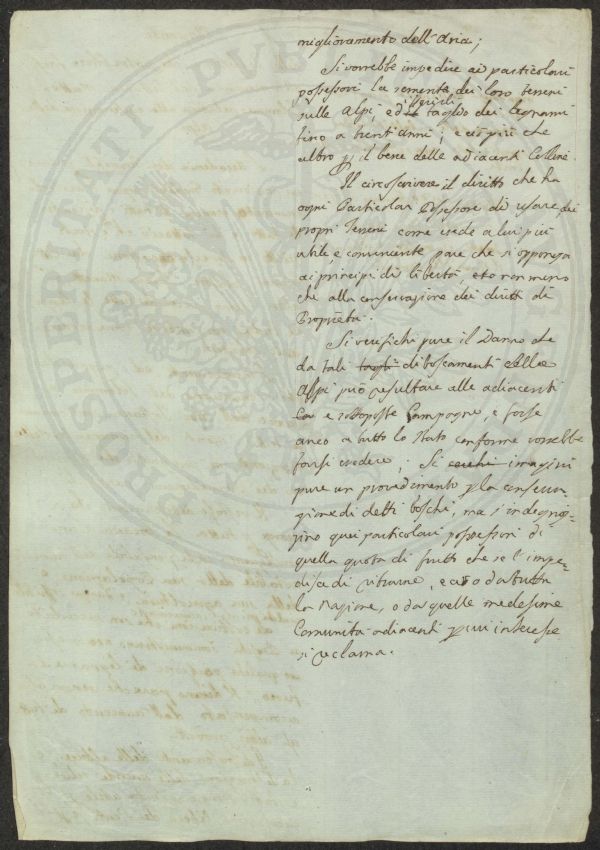 miglioramento dell'Aria;
Si vorrebbe impedire ai particolari
possessori la sementa dei loro terreni
sulle Alpi, ed il taglio dei legnami
fino a trent'anni; e ciò più che
altro p il bene delle adiacenti Colline.
Il circoscrivere il diritto che ha
ogni Particolar Possessore di usare dei
propri Terreni come vede a lui più
utile, e conveniente pare che si opponga
ai principj di libertà, e non meno
che alla conservazione dei diritti di
Proprietà.
Si verifichi pure il Danno che
da tali tagli diboscamenti delle
Alpi può resultare alle adiacenti
e sottoposte Campagne, e forse
anco a tutto lo Stato conforme vorrebbe
farsi credere; Si cerchi imagini
pure un provvedimento p la conserva-
zione di detti boschi, ma s'indennizz-
zino quei particolari possessori di
quella quota di frutto che se l'impe-
disce di ritrarne, e ciò o da tutta
la Nazione, o da quelle medesime
Comunità adiacenti p cui interesse
si reclama.
PROSPERITATI PUB